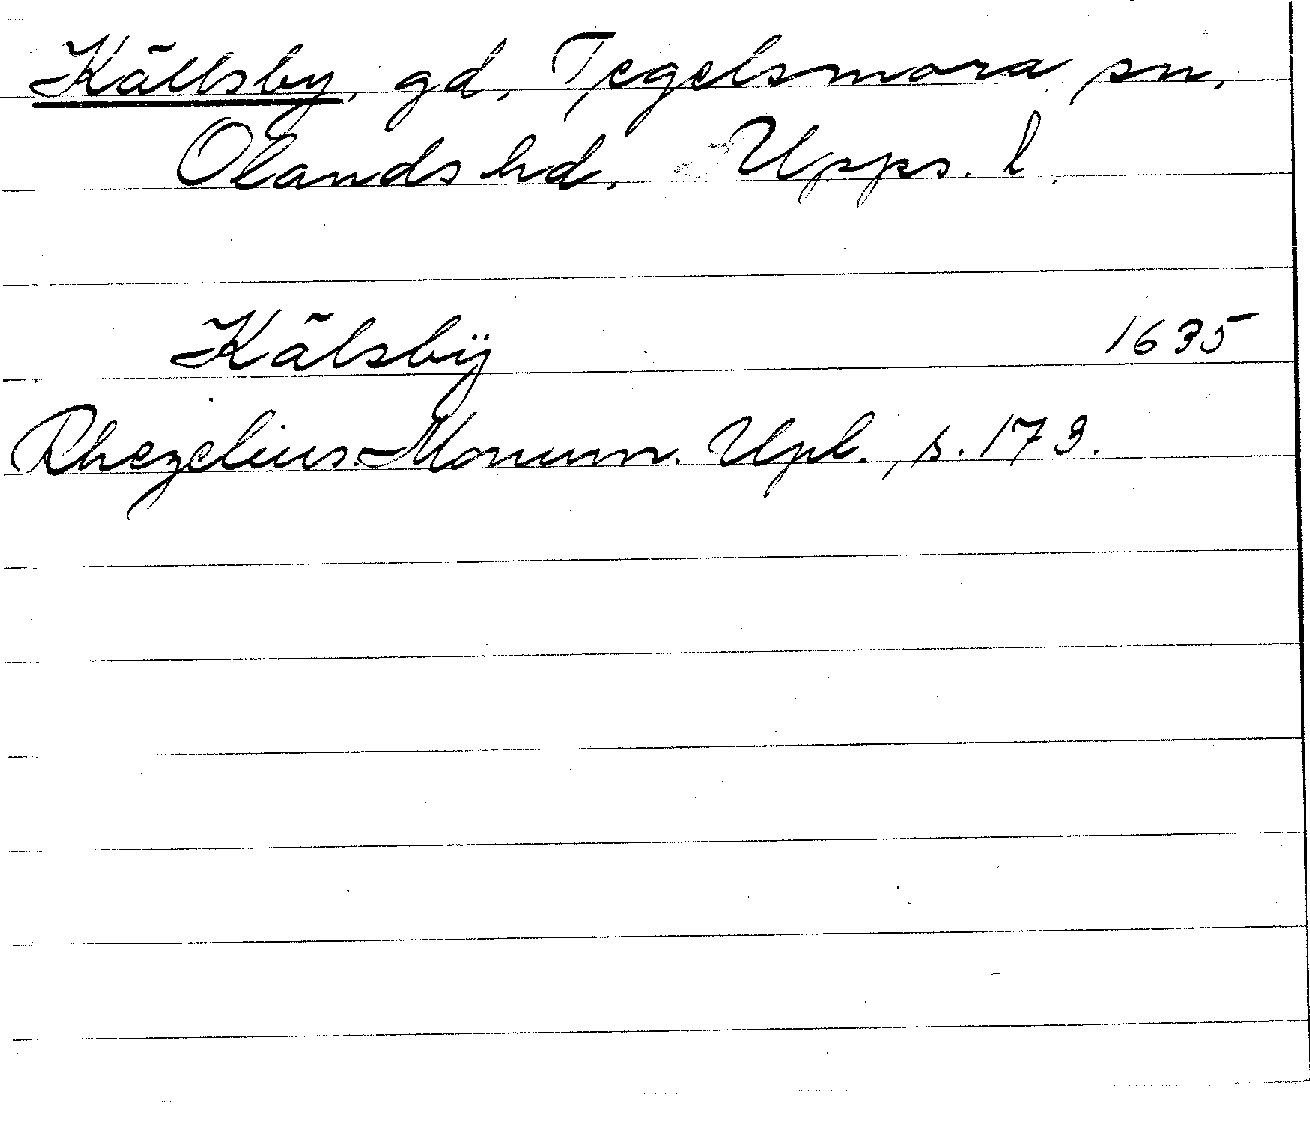 Källsby, gd, Tegelsmora sn,
Olands hd. Upps. l.
Kälsbÿ 1635
Rhezelius Monum. Upl., s. 173.